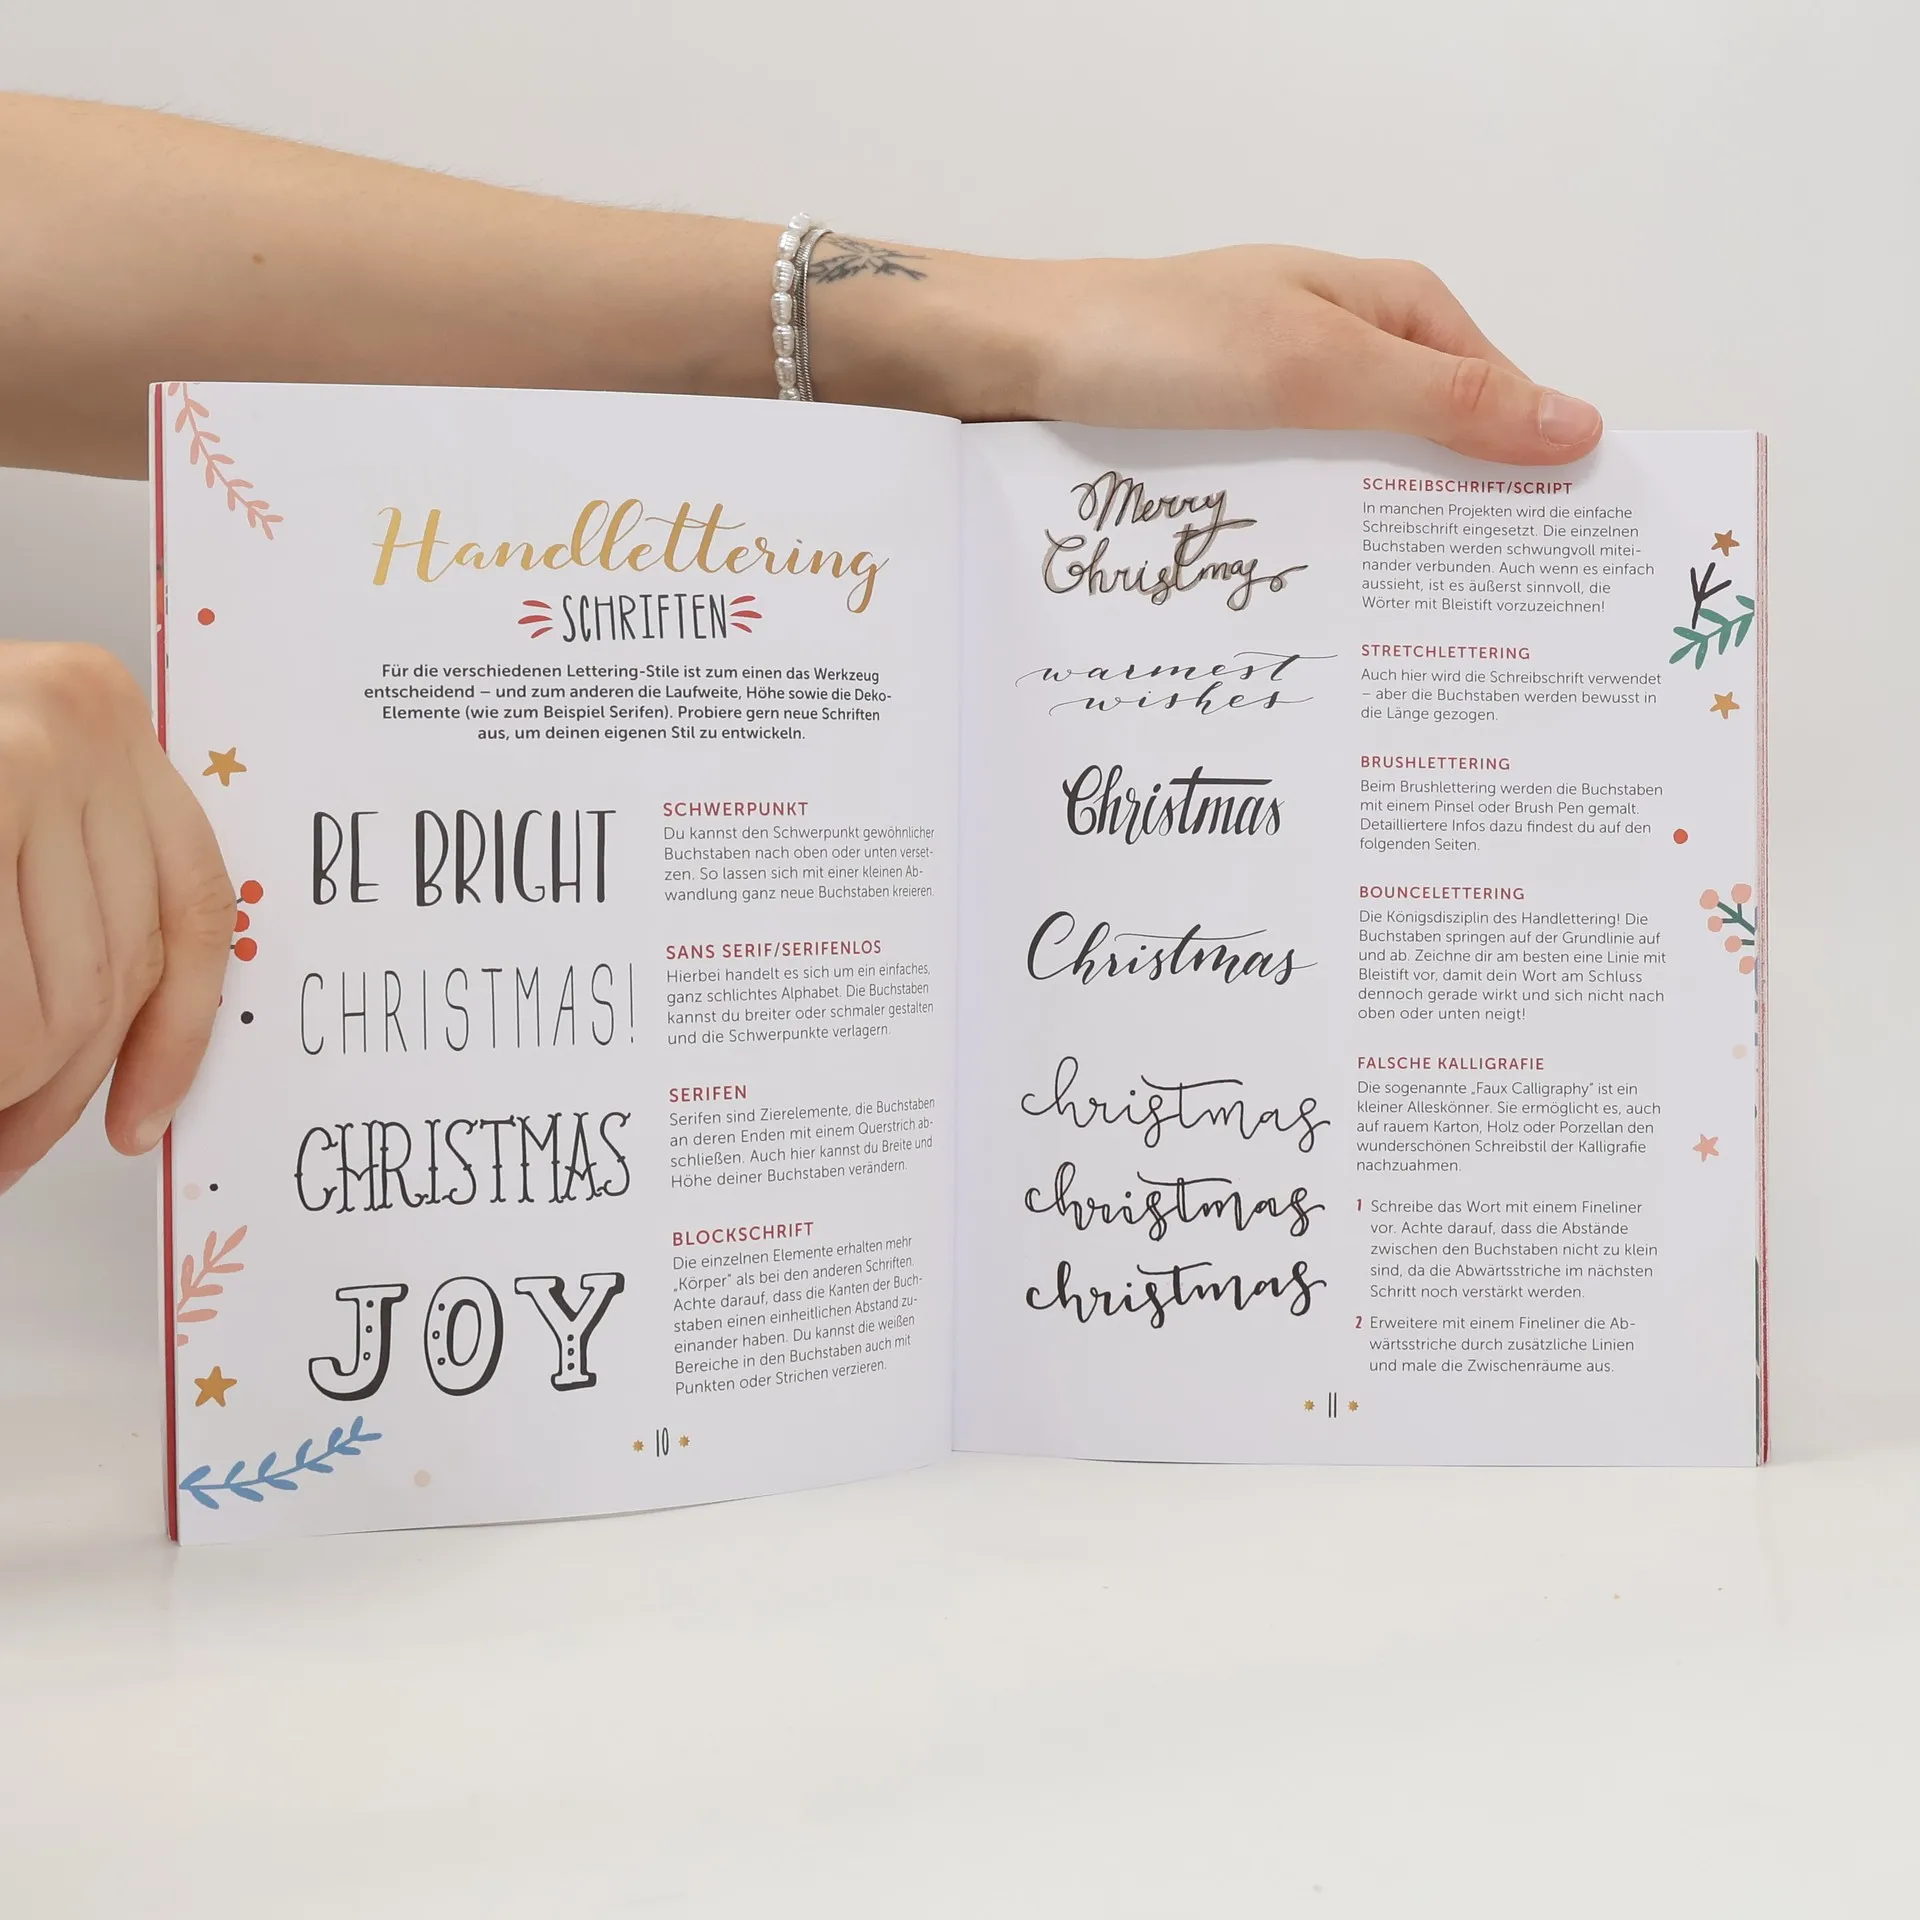 Handlettering
SCHRIFTEN
Für die verschiedenen Lettering-Stile ist zum einen das Werkzeug
entscheidend – und zum anderen die Laufweite, Höhe sowie die Deko-
Elemente (wie zum Beispiel Serifen). Probiere gern neue Schriften
aus, um deinen eigenen Stil zu entwickeln.
BE BRIGHT
SCHWERPUNKT
Du kannst den Schwerpunkt gewöhnlicher
Buchstaben nach oben oder unten verset-
zen. So lassen sich mit einer kleinen Ab-
wandlung ganz neue Buchstaben kreieren.
CHRISTMAS!
SANS SERIF/SERIFENLOS
Hierbei handelt es sich um ein einfaches,
ganz schlichtes Alphabet. Die Buchstaben
kannst du breiter oder schmaler gestalten
und die Schwerpunkte verlagern.
CHRISTMAS
SERIFEN
Serifen sind Zierelemente, die Buchstaben
an deren Enden mit einem Querstrich ab-
schließen. Auch hier kannst du Breite und
Höhe deiner Buchstaben verändern.
JOY
BLOCKSCHRIFT
Die einzelnen Elemente erhalten mehr
„Körper“ als bei den anderen Schriften.
Achte darauf, dass die Kanten der Buch-
staben einen einheitlichen Abstand zu-
einander haben. Du kannst die weißen
Bereiche in den Buchstaben auch mit
Punkten oder Strichen verzieren.
10
Merry
Christmas
SCHREIBSCHRIFT/SCRIPT
In manchen Projekten wird die einfache
Schreibschrift eingesetzt. Die einzelnen
Buchstaben werden schwungvoll mitei-
nander verbunden. Auch wenn es einfach
aussieht, ist es äußerst sinnvoll, die
Wörter mit Bleistift vorzuzeichnen!
warmest
wishes
STRETCHLETTERING
Auch hier wird die Schreibschrift verwendet
– aber die Buchstaben werden bewusst in
die Länge gezogen.
Christmas
BRUSHLETTERING
Beim Brushlettering werden die Buchstaben
mit einem Pinsel oder Brush Pen gemalt.
Detailliertere Infos dazu findest du auf den
folgenden Seiten.
Christmas
BOUNCELETTERING
Die Königsdisziplin des Handlettering! Die
Buchstaben springen auf der Grundlinie auf
und ab. Zeichne dir am besten eine Linie mit
Bleistift vor, damit dein Wort am Schluss
dennoch gerade wirkt und sich nicht nach
oben oder unten neigt!
christmas
christmas
christmas
FALSCHE KALLIGRAFIE
Die sogenannte „Faux Calligraphy“ ist ein
kleiner Alleskönner. Sie ermöglicht es, auch
auf rauem Karton, Holz oder Porzellan den
wunderschönen Schreibstil der Kalligrafie
nachzuahmen.
1 Schreibe das Wort mit einem Fineliner
vor. Achte darauf, dass die Abstände
zwischen den Buchstaben nicht zu klein
sind, da die Abwärtsstriche im nächsten
Schritt noch verstärkt werden.
2 Erweitere mit einem Fineliner die Ab-
wärtsstriche durch zusätzliche Linien
und male die Zwischenräume aus.
11